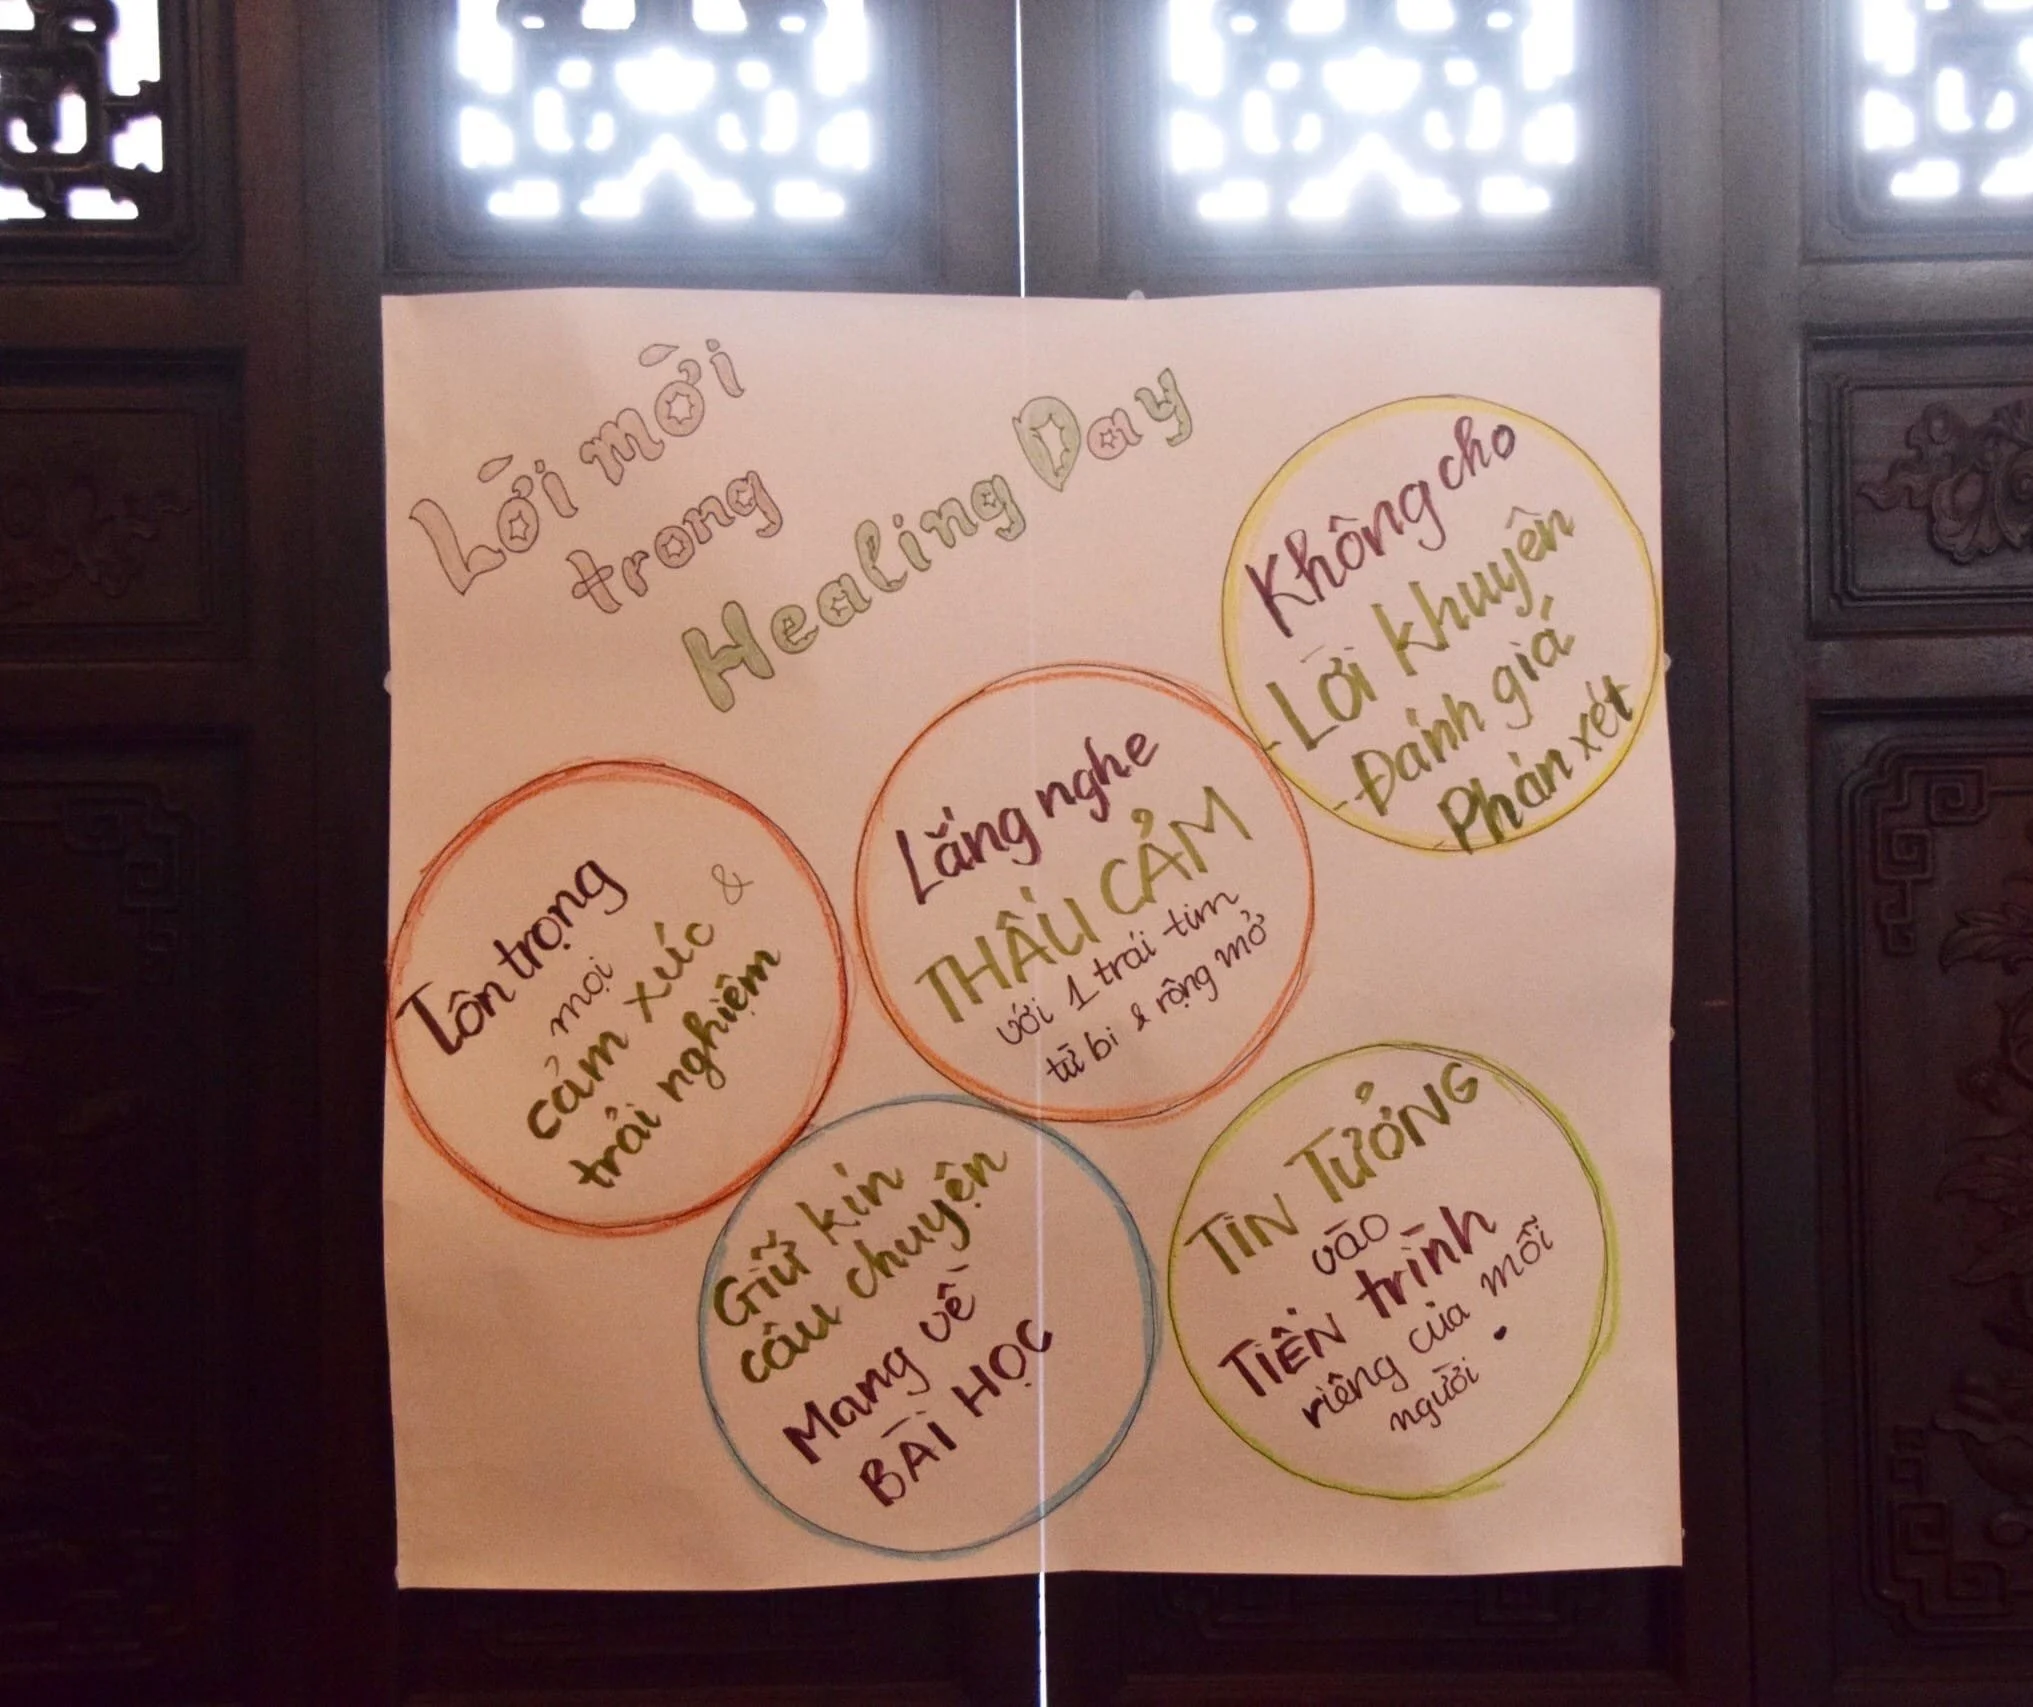 Lời mời
trong
Healing Day
Không cho
- Lời khuyên
- Đánh giá
Phán xét
Lắng nghe
THẤU CẢM
với 1 trái tim
từ bi & rộng mở
Tôn trọng
mọi
cảm xúc &
trải nghiệm
Giữ kín
câu chuyện
Mang về
BÀI HỌC
TIN TƯỞNG
vào
TIẾN trình
riêng của mỗi
người